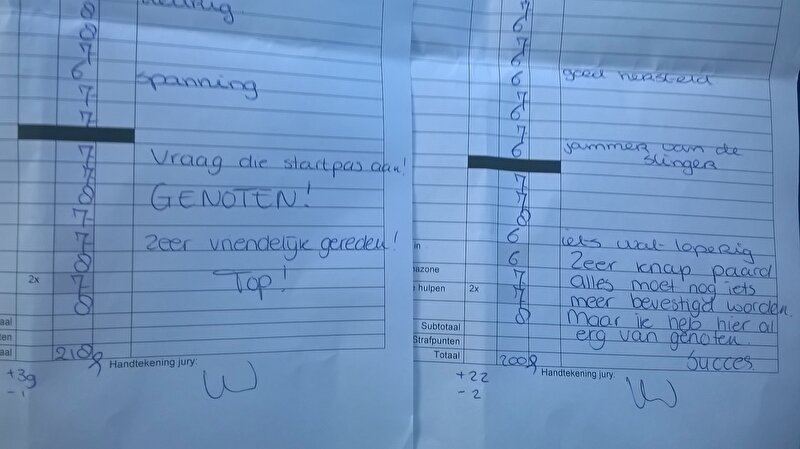 8
8
7
6
spanning
7
7
7
Vraag die startpas aan!
7
8
GENOTEN!
7
7
zeer vriendelijk gereden!
8
2x
7
Top!
8
aal
ten
aal
218
Handtekening jury:
+39
-1
7
6
7
7
6
goed hersteld
7
6
7
6
jammer van de
slinger
7
7
8
6
iets wat loperig
6
Zeer knap paard
azone
7
alles moet nog iets
hulpen
2x
7
meer bevestigd worden.
8
Maar ik heb hier al
Subtotaal
erg van genoten.
Strafpunten
Succes
Totaal
200
Handtekening jury:
+22
-2